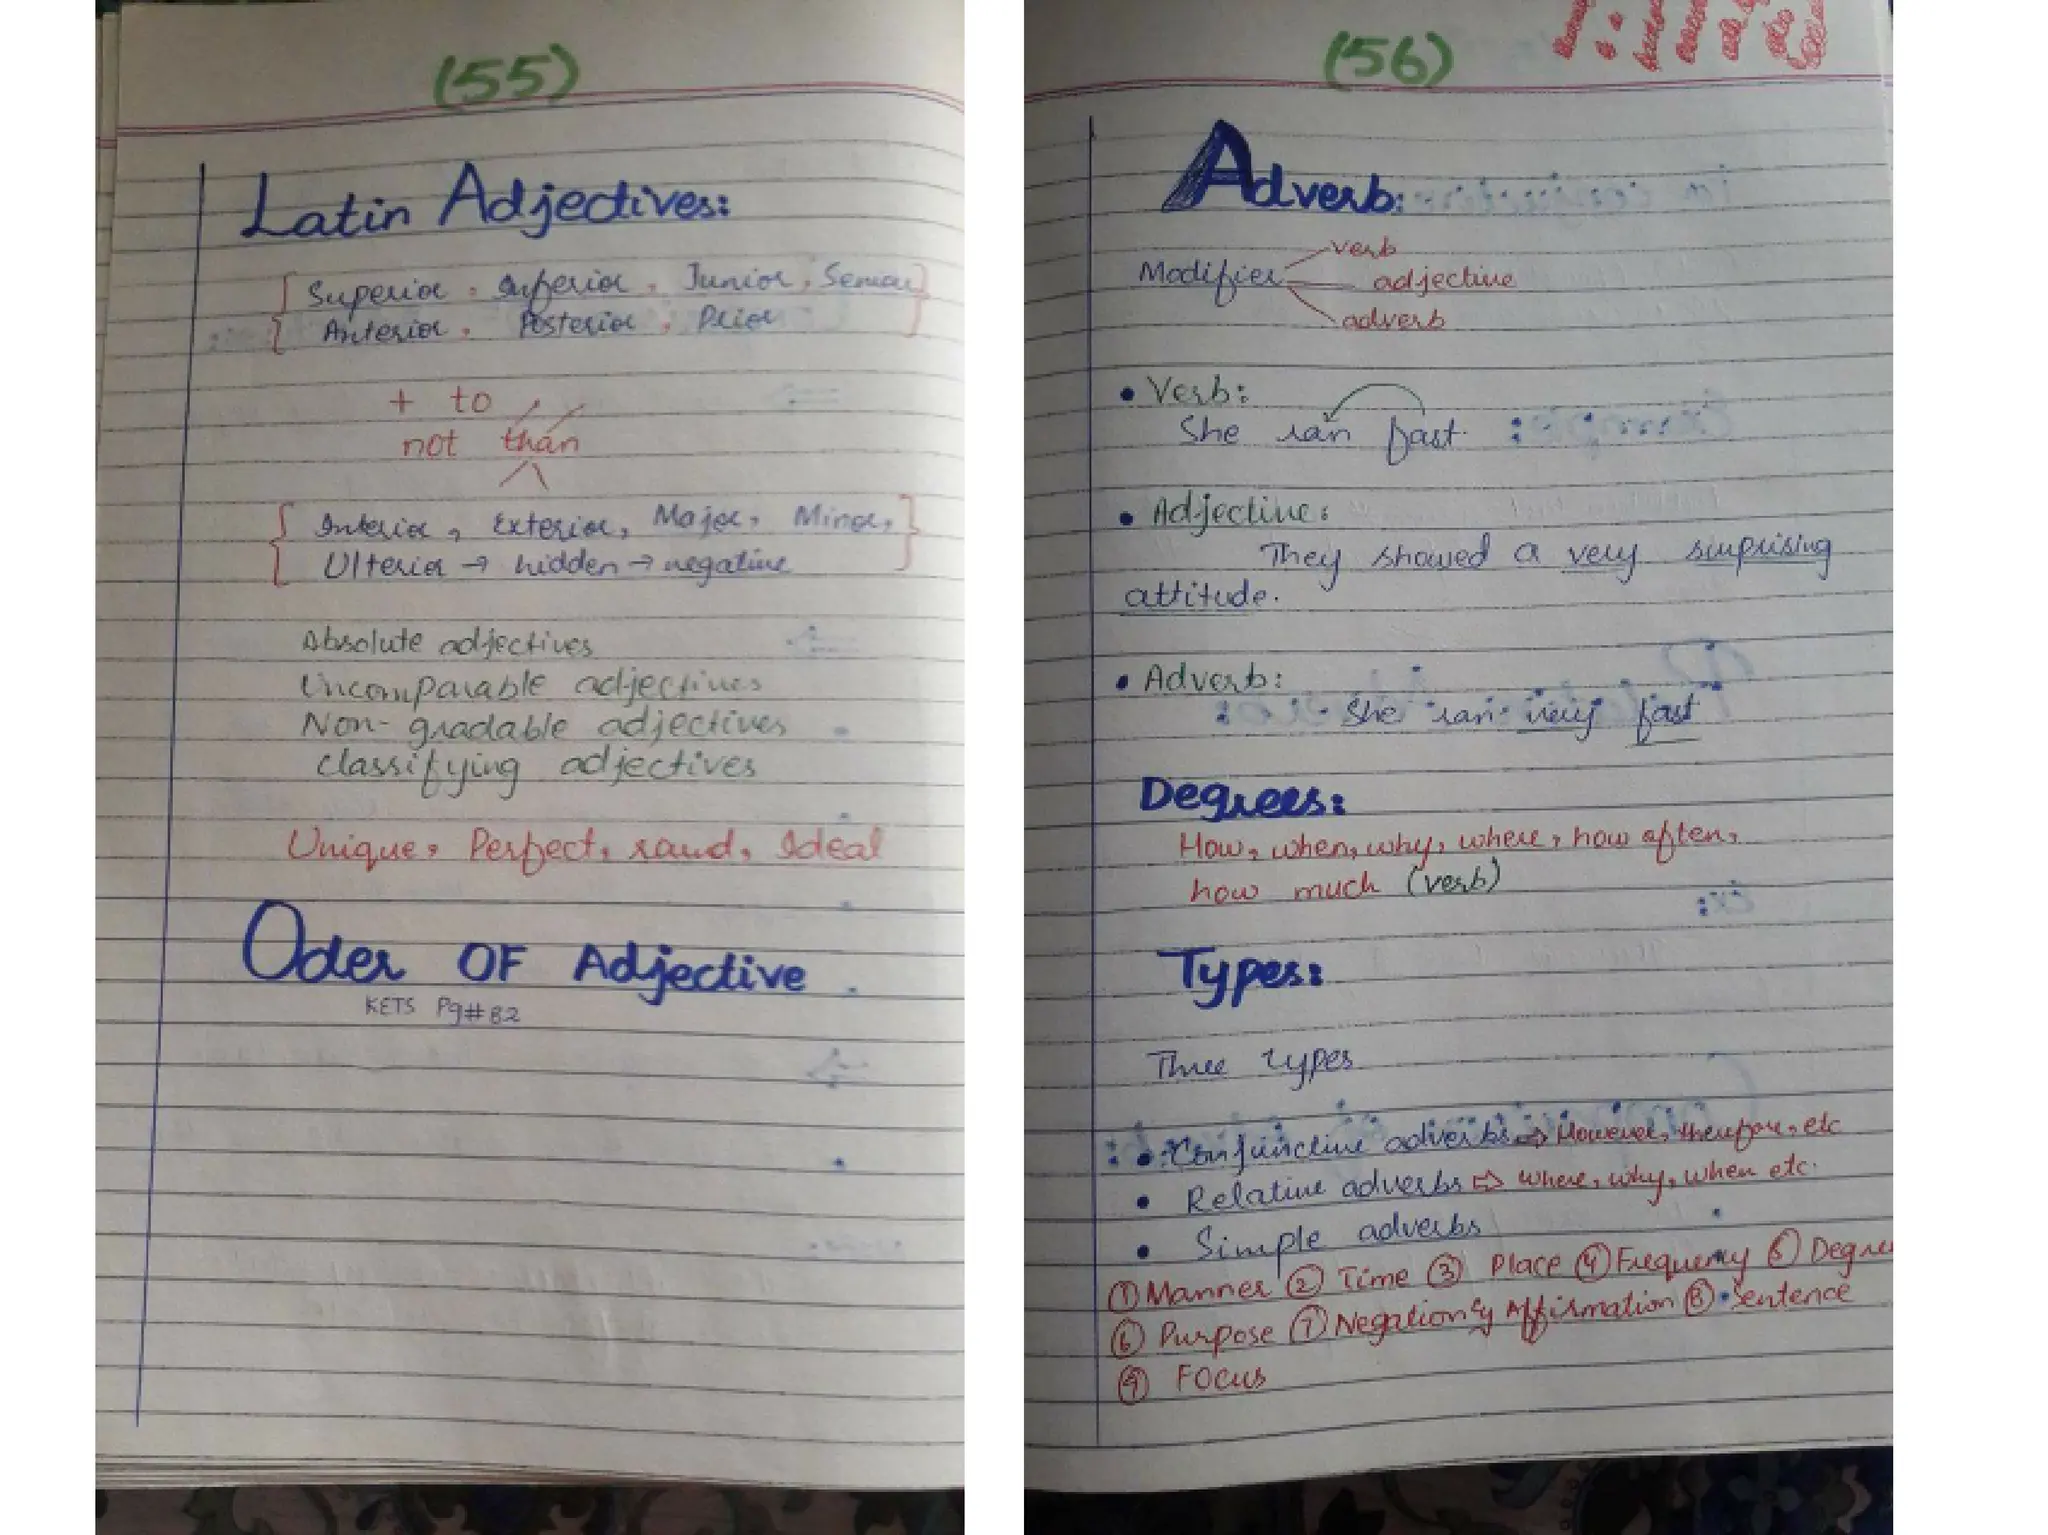 (55)
Latin Adjectives:
Superior, Inferior, Junior, Senior
Anterior, Posterior, Prior
+ to
not than
Interior, Exterior, Major, Minor,
Ulterior → hidden → negative
Absolute adjectives
Uncomparable adjectives
Non-gradable adjectives
classifying adjectives
Unique, Perfect, round, Ideal
Oder OF Adjective
KETS Pg# 82
(56)
Adverb:
verb
Modifier adjective
adverb
• Verb:
She ran fast.
• Adjective:
They showed a very surprising
attitude.
• Adverb:
She ran very fast
Degrees:
How, when, why, where, how often,
how much (verb)
Types:
Three types
• Conjunctive adverbs ⇒ However, therefore, etc
• Relative adverbs ⇒ where, why, when etc.
• Simple adverbs
① Manner ② Time ③ Place ④ Frequency ⑤ Degree
⑥ Purpose ⑦ Negation & Affirmation ⑧ Sentence
⑨ Focus